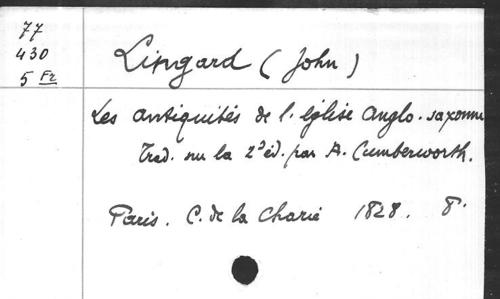 77
430
5 Fr
Lingard (John)
Les antiquités de l'église anglo-saxonne
Trad. sur la 2e éd. par A. Cumberworth.
Paris. C. de la Charie 1828. 8°.